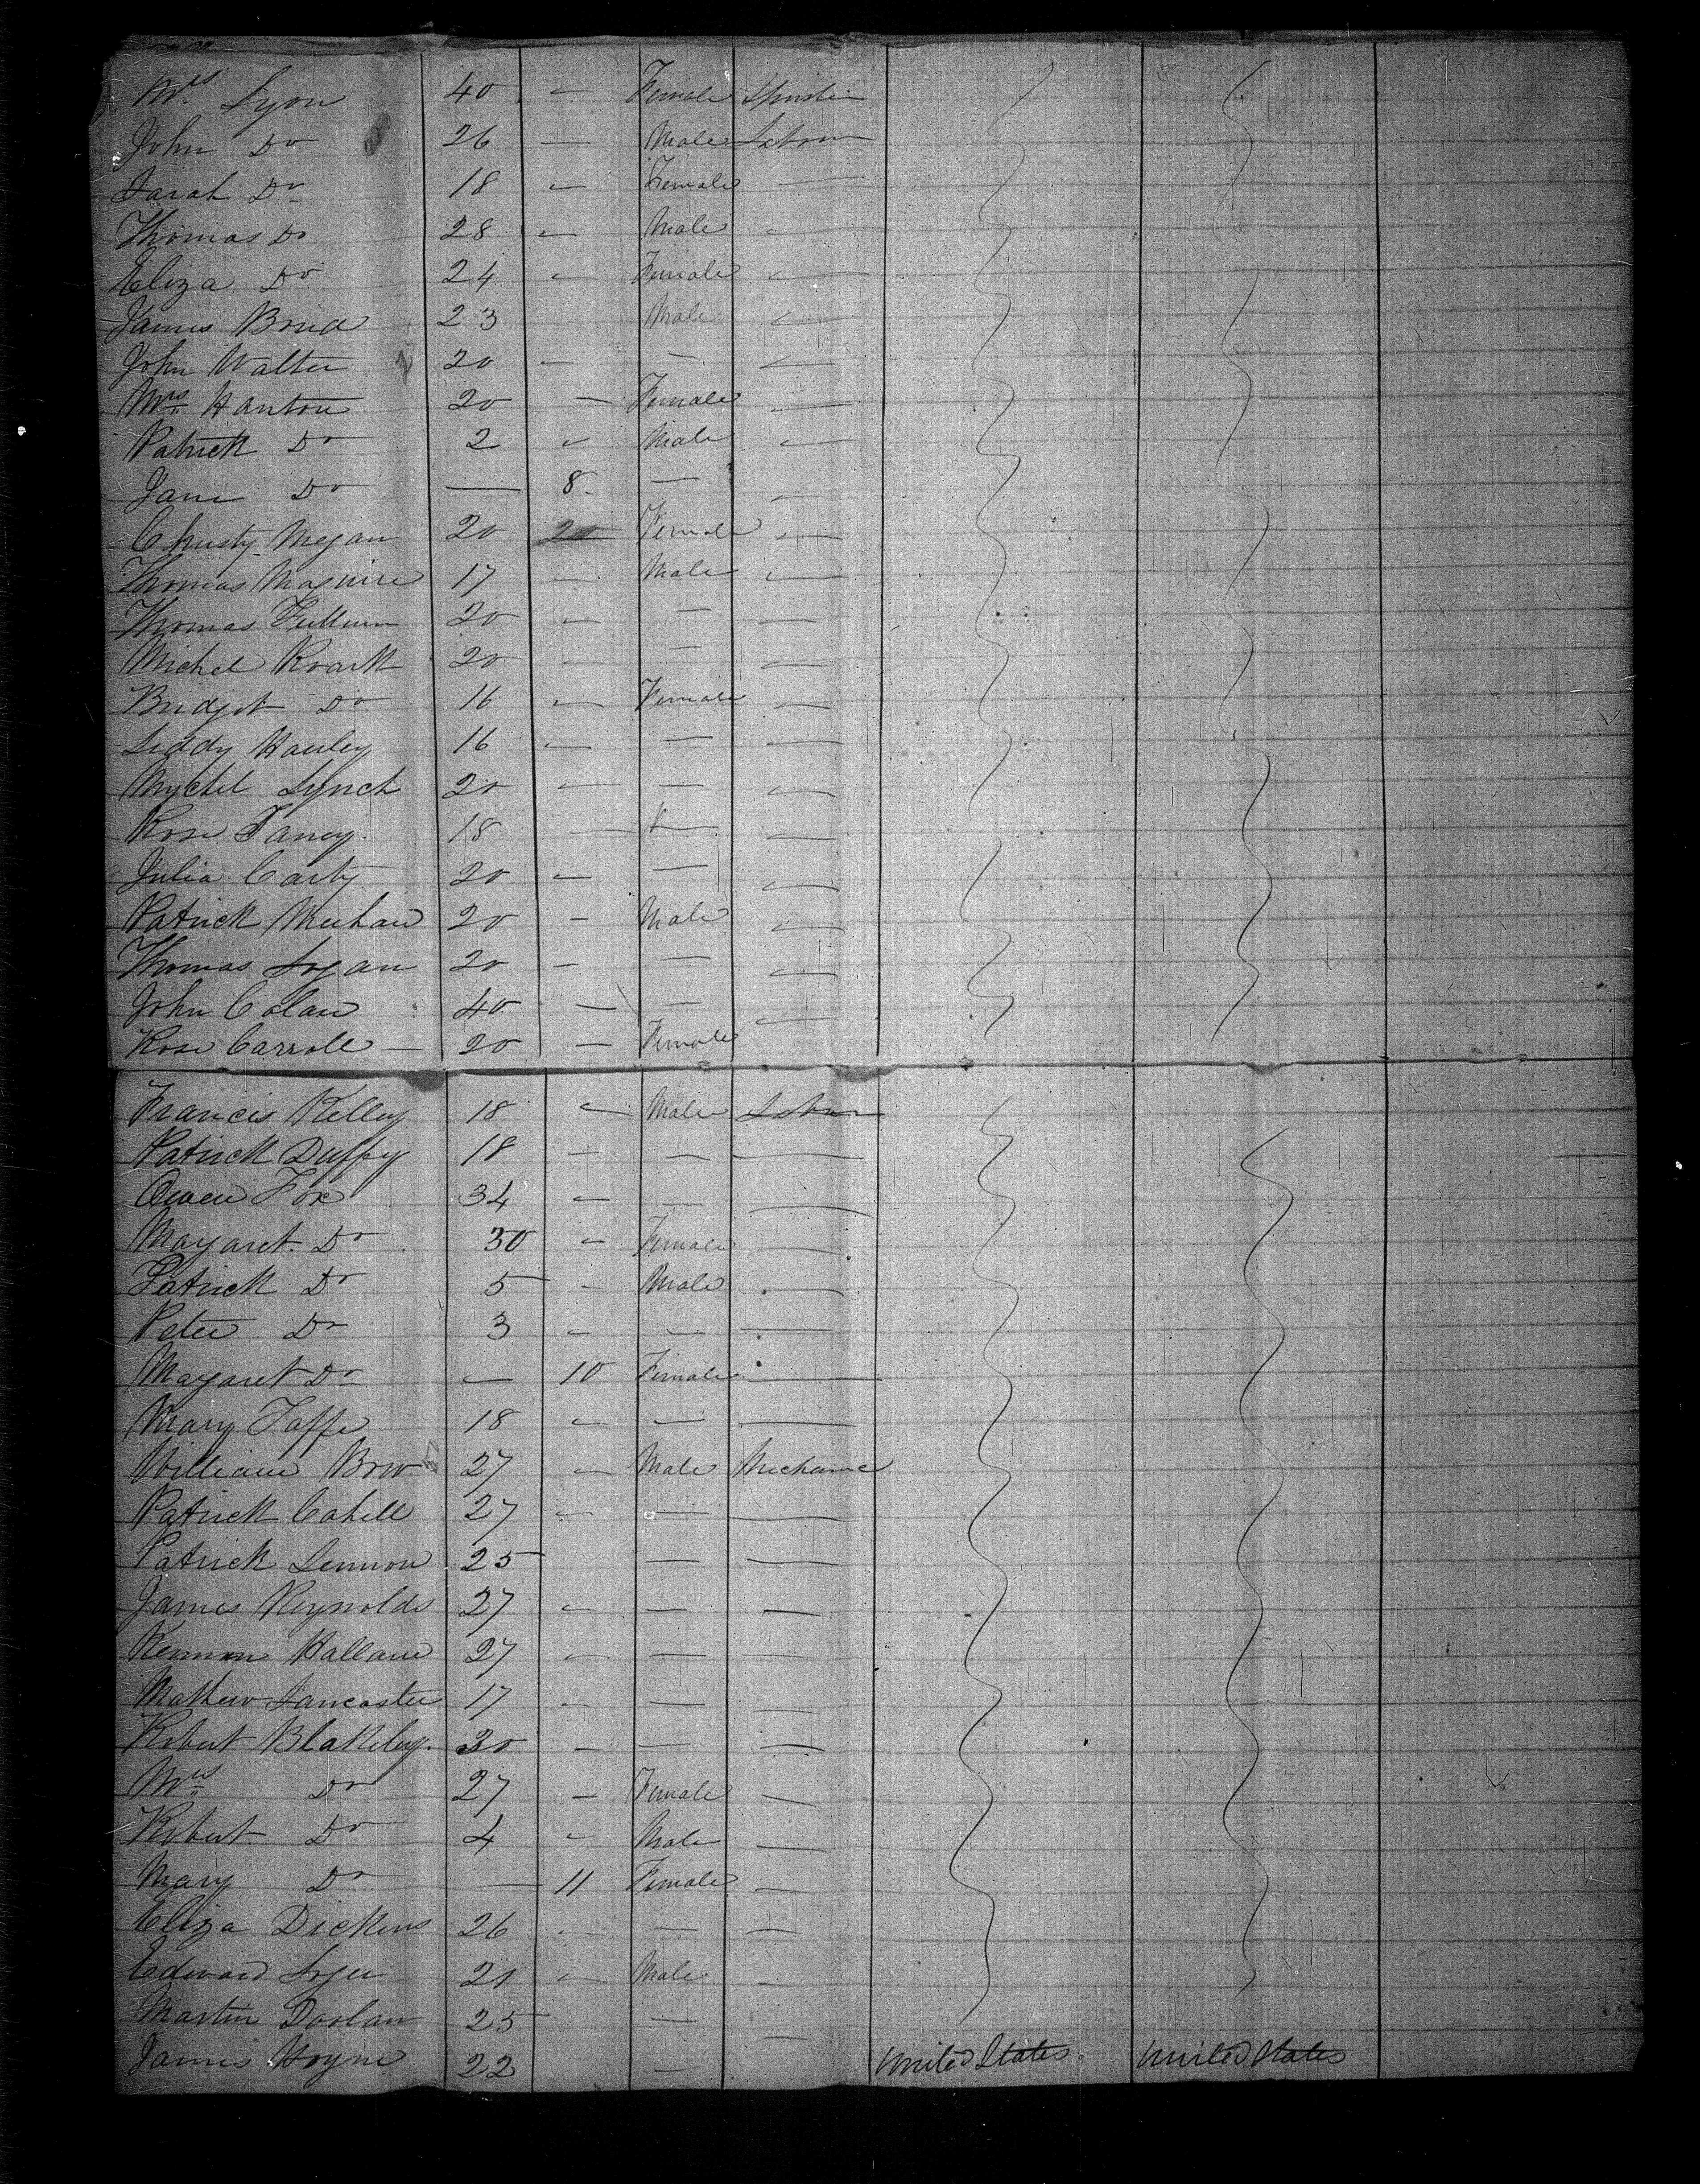 Mrs. Lyon 40 " Female Spinster
John Do 26 — Male Labour
Sarah Do 18 " Female —
Thomas Do 28 " Male "
Eliza Do 24 " Female "
James Brud 23 Male "
John Walter 20 — — "
Mrs. Hanton 20 — Female —
Patrick Do 2 " Male "
Jane Do — 8 — —
Christy Megan 20 Female —
Thomas Maguire 17 — Male "
Thomas Fullum 20 " — —
Michel Roark 20 — — —
Bridget Do 16 " Female —
Liddy Hauley 16 — — —
Mychel Lynch 20 — — —
Rose Taney 18 — — —
Julia Carty 20 " — —
Patrick Meehan 20 — Male —
Thomas Logan 20 — — —
John Colan 40 — — —
Rose Carroll — 20 — Female
Francis Kelley 18 " Male Labour
Patrick Duffy 18 — — —
Owen Fox 34 " — —
Margaret Do 30 " Female —
Patrick Do 5 " Male —
Peter Do 3 " — —
Margaret Do — 10 Female —
Mary Taffe 18 " — —
William Brow 27 " Male Mechanic
Patrick Cahill 27 " — —
Patrick Lennon 25 — —
James Reynolds 27 " — —
Hallam 27 " — —
Mathew Lancaster 17 " — —
Robert Blakeley 30 — — —
Mrs. Do 27 — Female —
Robert Do 4 " Male —
Mary Do — 11 Female —
Eliza Dickens 26 " — —
Edward 21 " Male —
Martin Doolan 25 — —
James Hoyne 22 — United States. United States